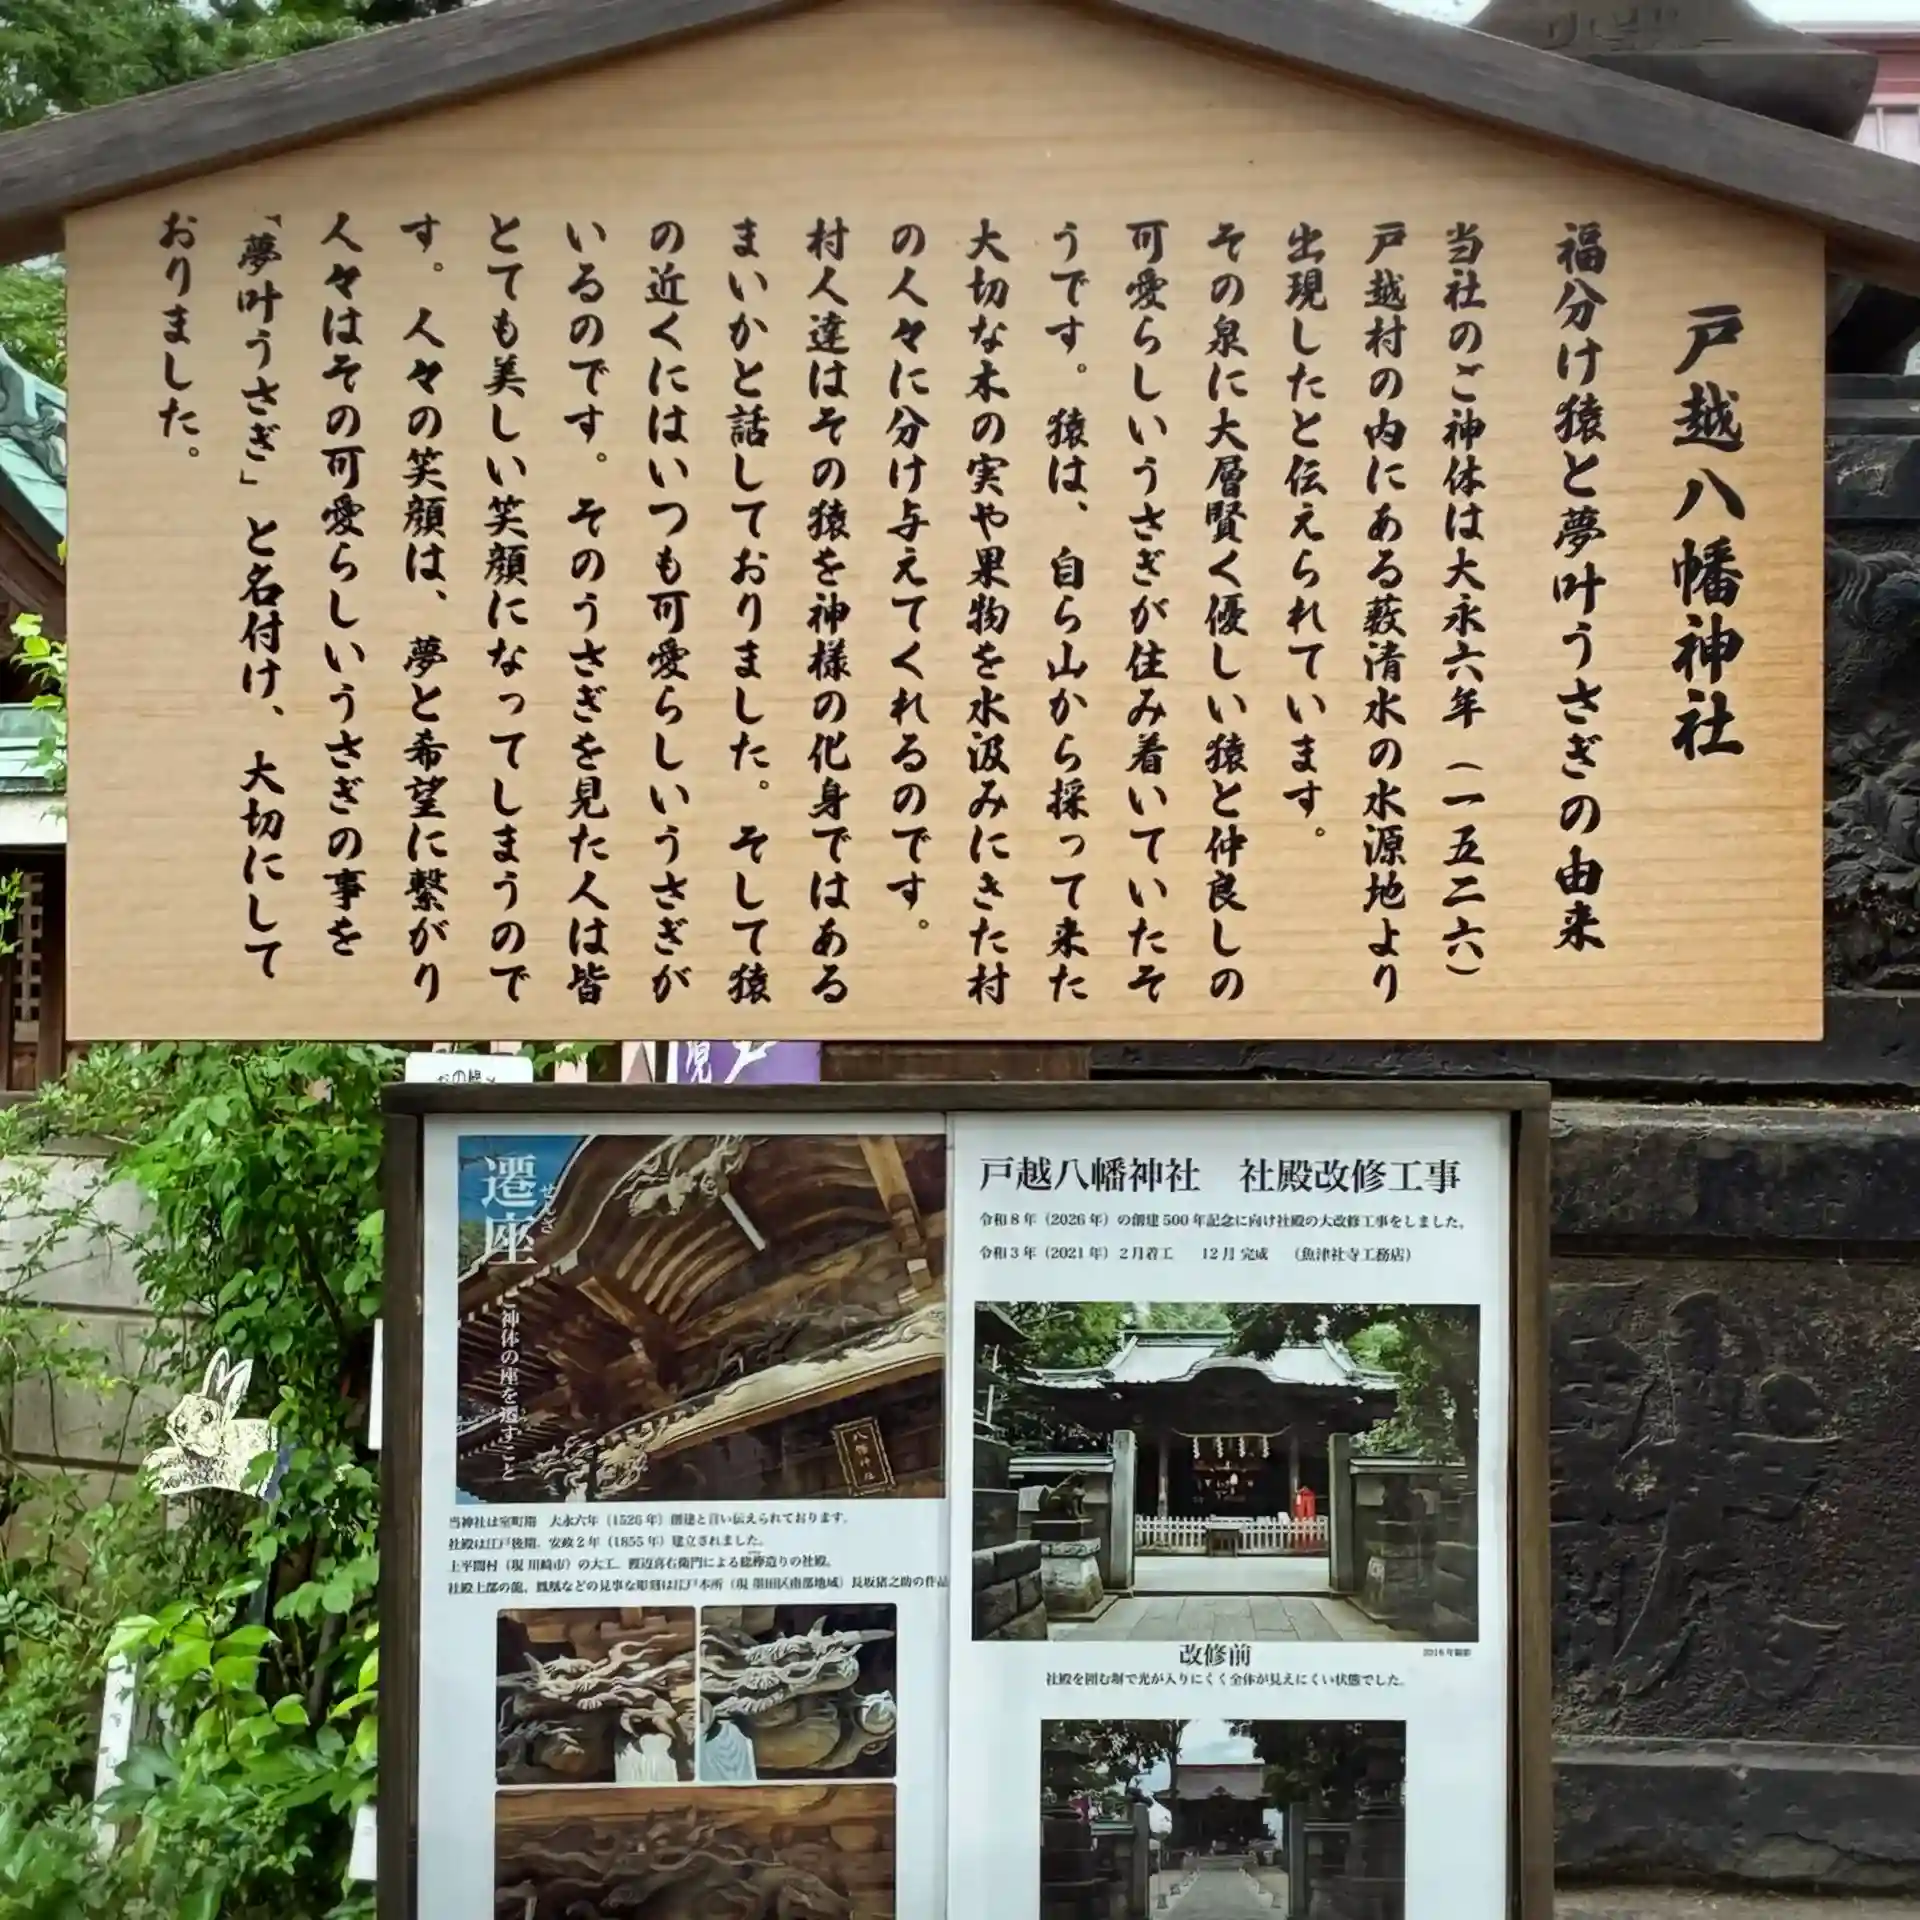 戸越八幡神社
福分け猿と夢叶うさぎの由来
当社のご神体は大永六年(一五二六)
戸越村の内にある藪清水の水源地より
出現したと伝えられています。
その泉に大層賢く優しい猿と仲良しの
可愛らしいうさぎが住み着いていたそ
うです。猿は、自ら山から採って来た
大切な木の実や果物を水汲みにきた村
の人々に分け与えてくれるのです。
村人達はその猿を神様の化身ではある
まいかと話しておりました。そして猿
の近くにはいつも可愛らしいうさぎが
いるのです。そのうさぎを見た人は皆
とても美しい笑顔になってしまうので
す。人々の笑顔は、夢と希望に繋がり
人々はその可愛らしいうさぎの事を
「夢叶うさぎ」と名付け、大切にして
おりました。
遷座
せんざ
ご神体の座を遷すこと
八幡神社
当神社は室町期 大永六年(1526年)創建と言い伝えられております。
社殿は江戸後期、安政2年(1855年)建立されました。
上平間村(現 川崎市)の大工、渡辺喜右衛門による総欅造りの社殿。
社殿上部の龍、鳳凰などの見事な彫刻は江戸本所(現 墨田区南部地域)長坂猪之助の作品
戸越八幡神社 社殿改修工事
令和8年(2026年)の創建500年記念に向け社殿の大改修工事をしました。
令和3年(2021年)2月着工 12月完成 (魚津社寺工務店)
改修前
社殿を囲む塀で光が入りにくく全体が見えにくい状態でした。